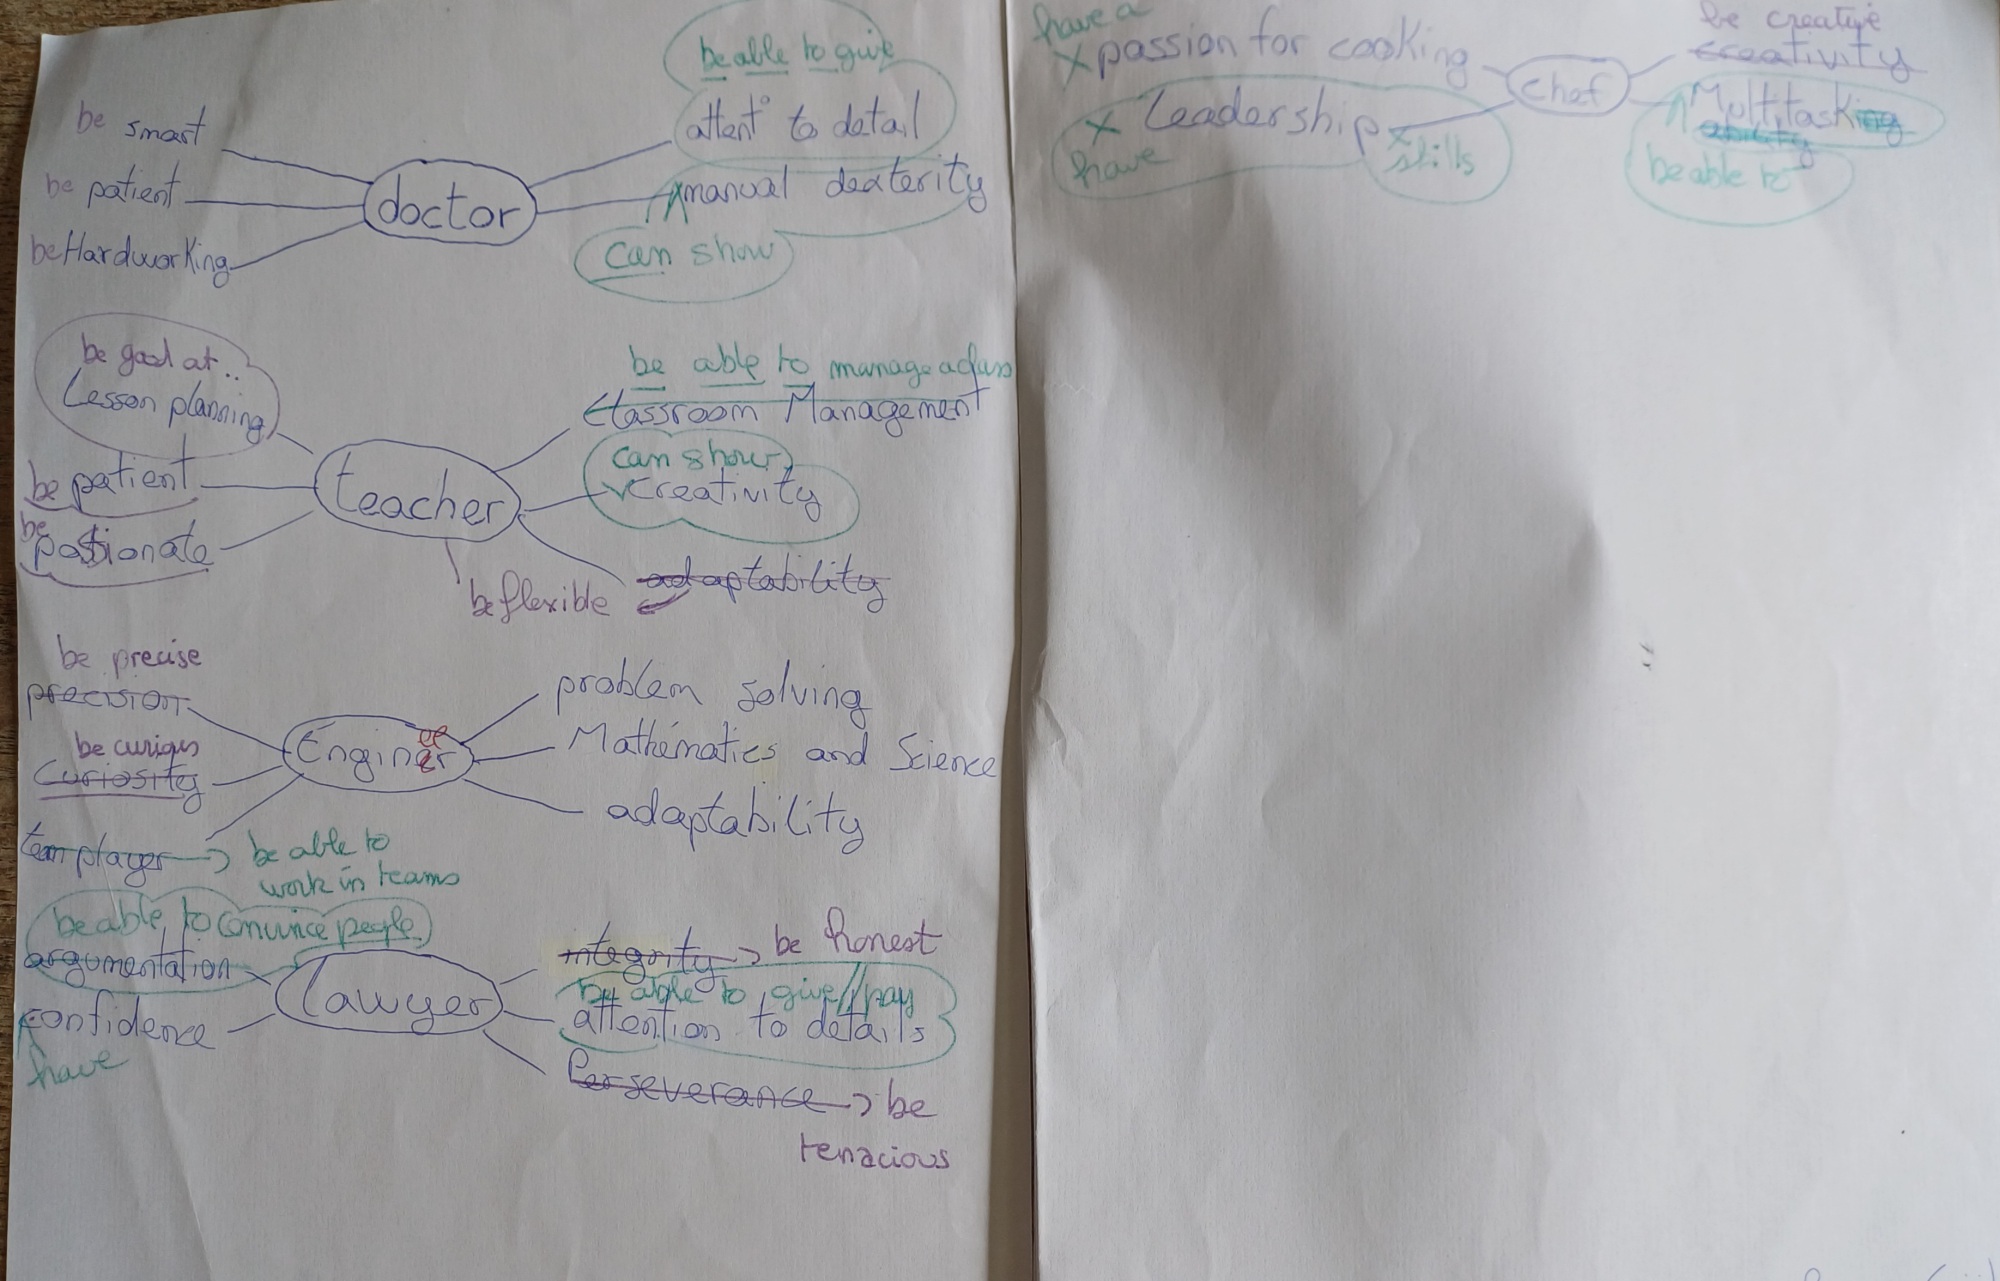 be able to give
attent° to detail
be smart
be patient
be Hardworking
doctor
manual dexterity
can show
be good at..
Lesson planning
be patient
be passionate
teacher
be able to manage a class
Classroom Management
can show
creativity
adaptability
be flexible
be precise
precision
be curious
Curiosity
team player → be able to
work in teams
Engineer
problem solving
Mathematics and Science
adaptability
be able to convince people
argumentation
confidence
have
Lawyer
integrity → be honest
be able to give // pay
attention to details
Perseverance → be
tenacious
have a
passion for cooking
Leadership
have
skills
chef
be creative
creativity
Multitasking
ability
be able to